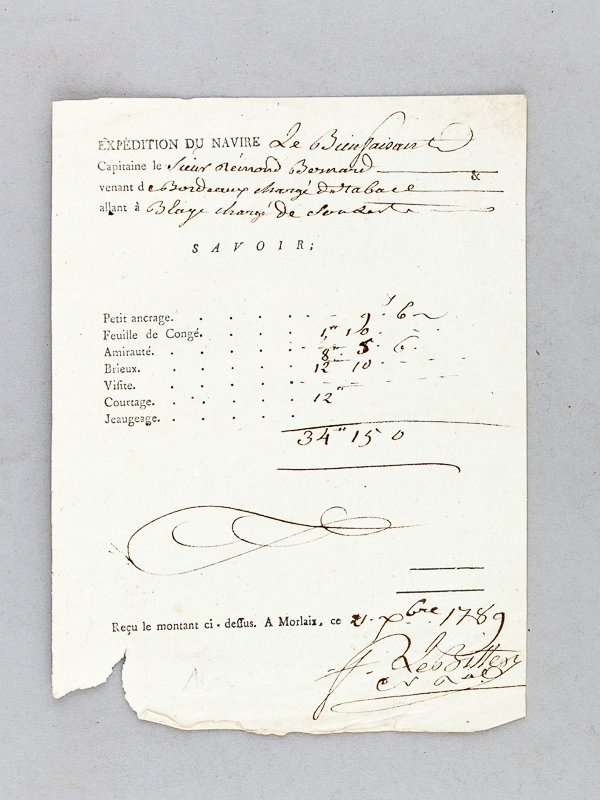 EXPÉDITION DU NAVIRE Le Bienfaisant
Capitaine le Sieur Rémond Bernard &
venant de Bordeaux chargé de tabac
allant à Blaye chargé de
SAVOIR;
Petit ancrage. . . . . . 9 s 6
Feuille de Congé. . . . . 1" 10
Amirauté. . . . . . . 8" 5 6
Brieux. . . . . . . 12 10
Visite. . . . . . .
Courtage. . . . . . . 12"
Jeaugeage. . . . . . .
34" 15 0
Reçu le montant ci-dessus. A Morlaix, ce 21 Xbre 1789